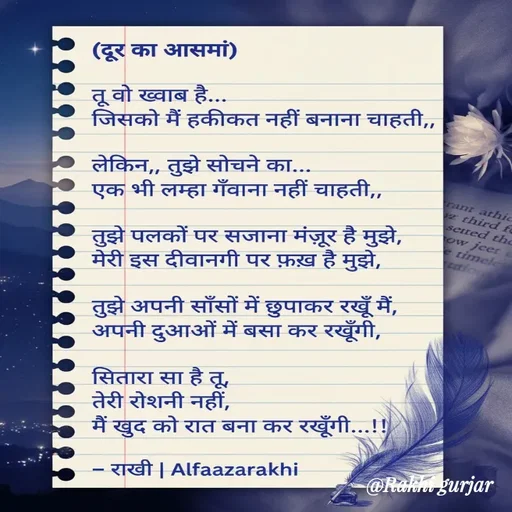 (दूर का आसमां)
तू वो ख्वाब है...
जिसको मैं हकीकत नहीं बनाना चाहती,,
लेकिन,, तुझे सोचने का...
एक भी लम्हा गँवाना नहीं चाहती,,
तुझे पलकों पर सजाना मंज़ूर है मुझे,
मेरी इस दीवानगी पर फ़ख़ है मुझे,
तुझे अपनी साँसों में छुपाकर रखूँ मैं,
अपनी दुआओं में बसा कर रखूँगी,
सितारा सा है तू,
तेरी रोशनी नहीं,
मैं खुद को रात बना कर रखूँगी...!!
– राखी | Alfaazarakhi
@Rakhi gurjar